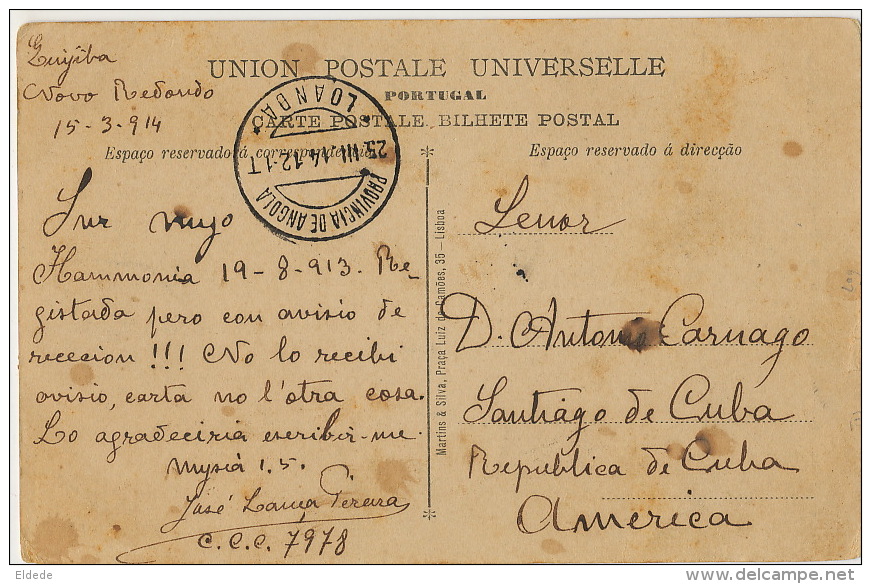 Quijiba
Novo Redondo
15-3-914
UNION POSTALE UNIVERSELLE
PORTUGAL
CARTE POSTALE. BILHETE POSTAL
Espaço reservado á correspondencia
Espaço reservado á direcção
LOANDA
25 III. 14. 12-1T
PROVINCIA DE ANGOLA
Sur muyo
Hammonia 19-8-913. Re-
gistada pero con avisio de
rececion !!! No lo recibi
avisio, carta no l'otra cosa.
Lo agradeciria escribir-me.
1.5.
José Pereira
C.C.C. 7978
Martins & Silva, Praça Luiz de Camões, 35 – Lisboa
Senor
D. Antonio Carnago
Santiago de Cuba
Republica de Cuba
America
Eldede
delcampe.net